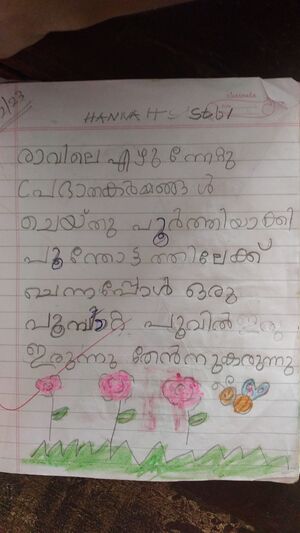 രാവിലെ എഴുന്നേറ്റു
പ്രഭാതകർമ്മങ്ങൾ
ചെയ്തു പൂർത്തിയാക്കി
പൂന്തോട്ടത്തിലേക്ക്
ചെന്നപ്പോൾ ഒരു
പൂമ്പാറ്റ പൂവിൽ ഇരു
ഇരുന്നു തേൻനുകരുന്നു